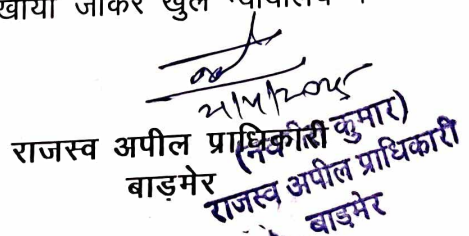 जाकर खुले
21/5/2025
राजस्व अपील प्राधिकारी
बाड़मेर
कुमार)
राजस्व अपील प्राधिकारी
बाड़मेर